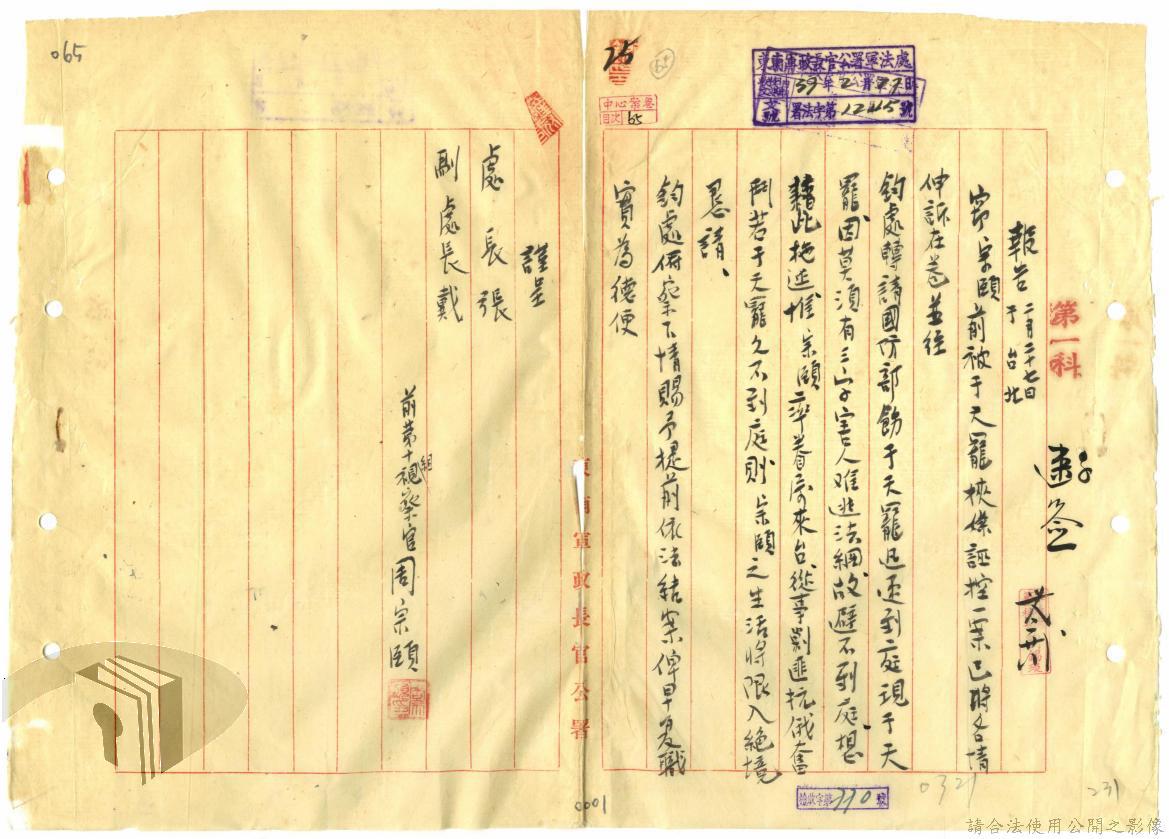 065
25
65
東南軍政長官公署軍法處
39年2月27日
文號
署法字第12415號
中心案卷
目次
65
第一科
速簽
報告 二月二十七日
于台北
竊宗頤前被于天罷挾嫌誣控一案已將各情
伸訴在卷並經
鈞處轉請國防部飭于天罷迅速到庭現于天
罷因莫須有三字害人难逃法網故避不到庭想
藉此拖延惟宗頤率眷屬來台從事剿匪抗俄奮
鬥若于天罷久不到庭則宗頤之生活將限入絕境
懇請、
鈞處俯察下情賜予提前依法結案俾早复職
實為德便
謹呈
處長張
副處長戴
前第十視察組官周宗頤
東南軍政長官公署
總收字第770號
0321
231
0001
請合法使用公開之影像